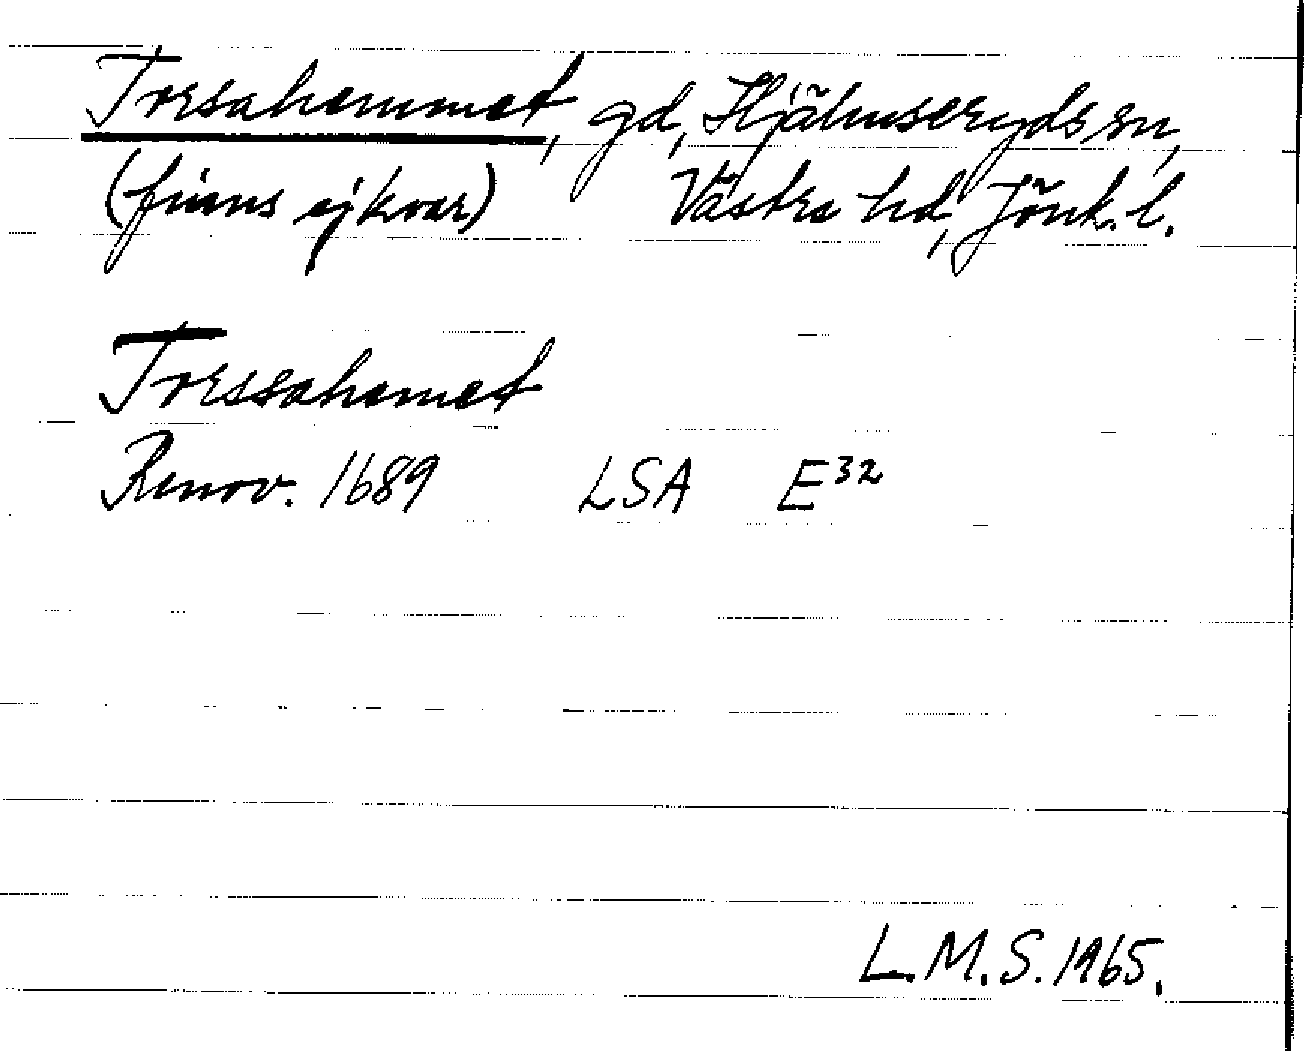 Torsahemmet, gd, Hjälmseryds sn,
(finns ej kvar) Västra hd, Jönk. l.
Torssahemet
Renov. 1689 LSA E32
L.M.S. 1965.